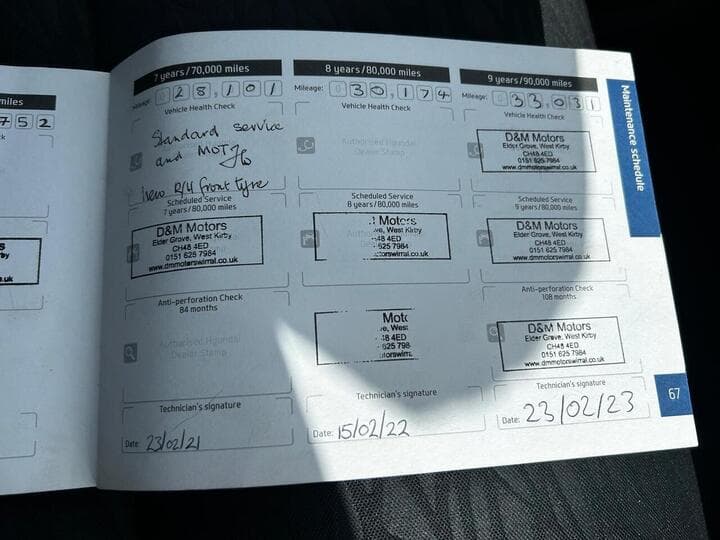 miles
752
by
.uk
7 years/70,000 miles
Mileage: 028,101
Vehicle Health Check
Standard service
and MOT
new R/H front tyre
Scheduled Service
7 years/80,000 miles
D&M Motors
Elder Grove, West Kirby
CH48 4ED
0151 625 7984
www.dmmotorswirral.co.uk
Anti-perforation Check
84 months
Authorised Hyundai
Dealer Stamp
Technician's signature
Date: 23/02/21
8 years/80,000 miles
Mileage: 030,174
Vehicle Health Check
Authorised Hyundai
Dealer Stamp
Scheduled Service
8 years/80,000 miles
Motors
ve, West Kirby
48 4ED
625 7984
torswirral.co.uk
Moto
ve, West
48 4ED
625 798
torswirra
Technician's signature
Date: 15/02/22
9 years/90,000 miles
Mileage: 033,031
Vehicle Health Check
D&M Motors
Elder Grove, West Kirby
CH48 4ED
0151 625 7984
www.dmmotorswirral.co.uk
Scheduled Service
9 years/90,000 miles
D&M Motors
Elder Grove, West Kirby
CH48 4ED
0151 625 7984
www.dmmotorswirral.co.uk
Anti-perforation Check
108 months
D&M Motors
Elder Grove, West Kirby
CH48 4ED
0151 625 7984
www.dmmotorswirral.co.uk
Technician's signature
Date: 23/02/23
Maintenance schedule
67